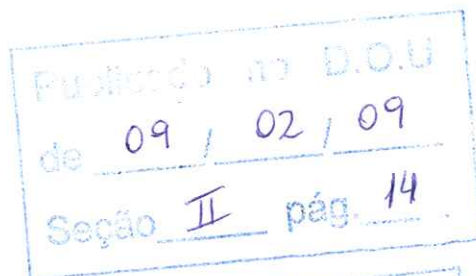 Publicado no D.O.U
de 09 / 02 / 09
Seção II pág. 14.